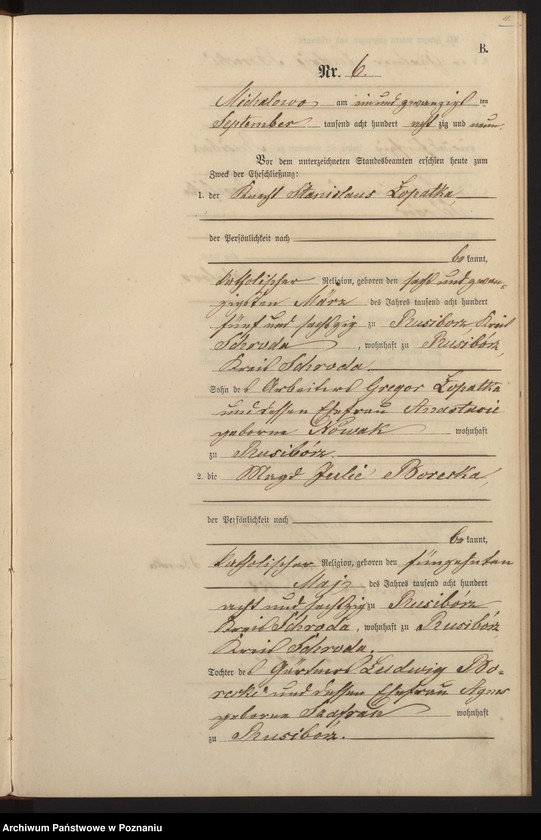 B.
Nr. 6.
Michalowo am ein und zwanzigsten
September tausend acht hundert acht zig und neun
Vor dem unterzeichneten Standesbeamten erschien heute zum
Zweck der Eheschließung:
1. der Knecht Stanislaus Lopatka,
der Persönlichkeit nach
be kannt,
katholischer Religion, geboren den sechs und zwan-
zigsten März des Jahres tausend acht hundert
fünf und sechzig zu Rusiborz, Kreis
Schroda, wohnhaft zu Rusibórz,
Kreis Schroda.
Sohn des Arbeiters Gregor Lopatka
und dessen Ehefrau Anastasie
geborne Nowak wohnhaft
zu Rusibórz.
2. die Magd Julie Borecka,
der Persönlichkeit nach
be kannt,
katholischer Religion, geboren den fünfzehnten
Maj des Jahres tausend acht hundert
acht und sechzig zu Rusibórz
Kreis Schroda, wohnhaft zu Rusibórz
Kreis Schroda.
Tochter des Gärtners Ludwig Bo-
recki und dessen Ehefrau Agnes
geborne wohnhaft
zu Rusibórz.
Archiwum Państwowe w Poznaniu